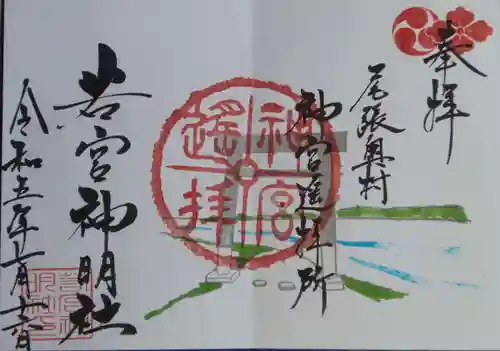 奉拝
尾張奥村
神宮遥拝所
神宮遙拝
若宮神明社
令和五年十一月十六日